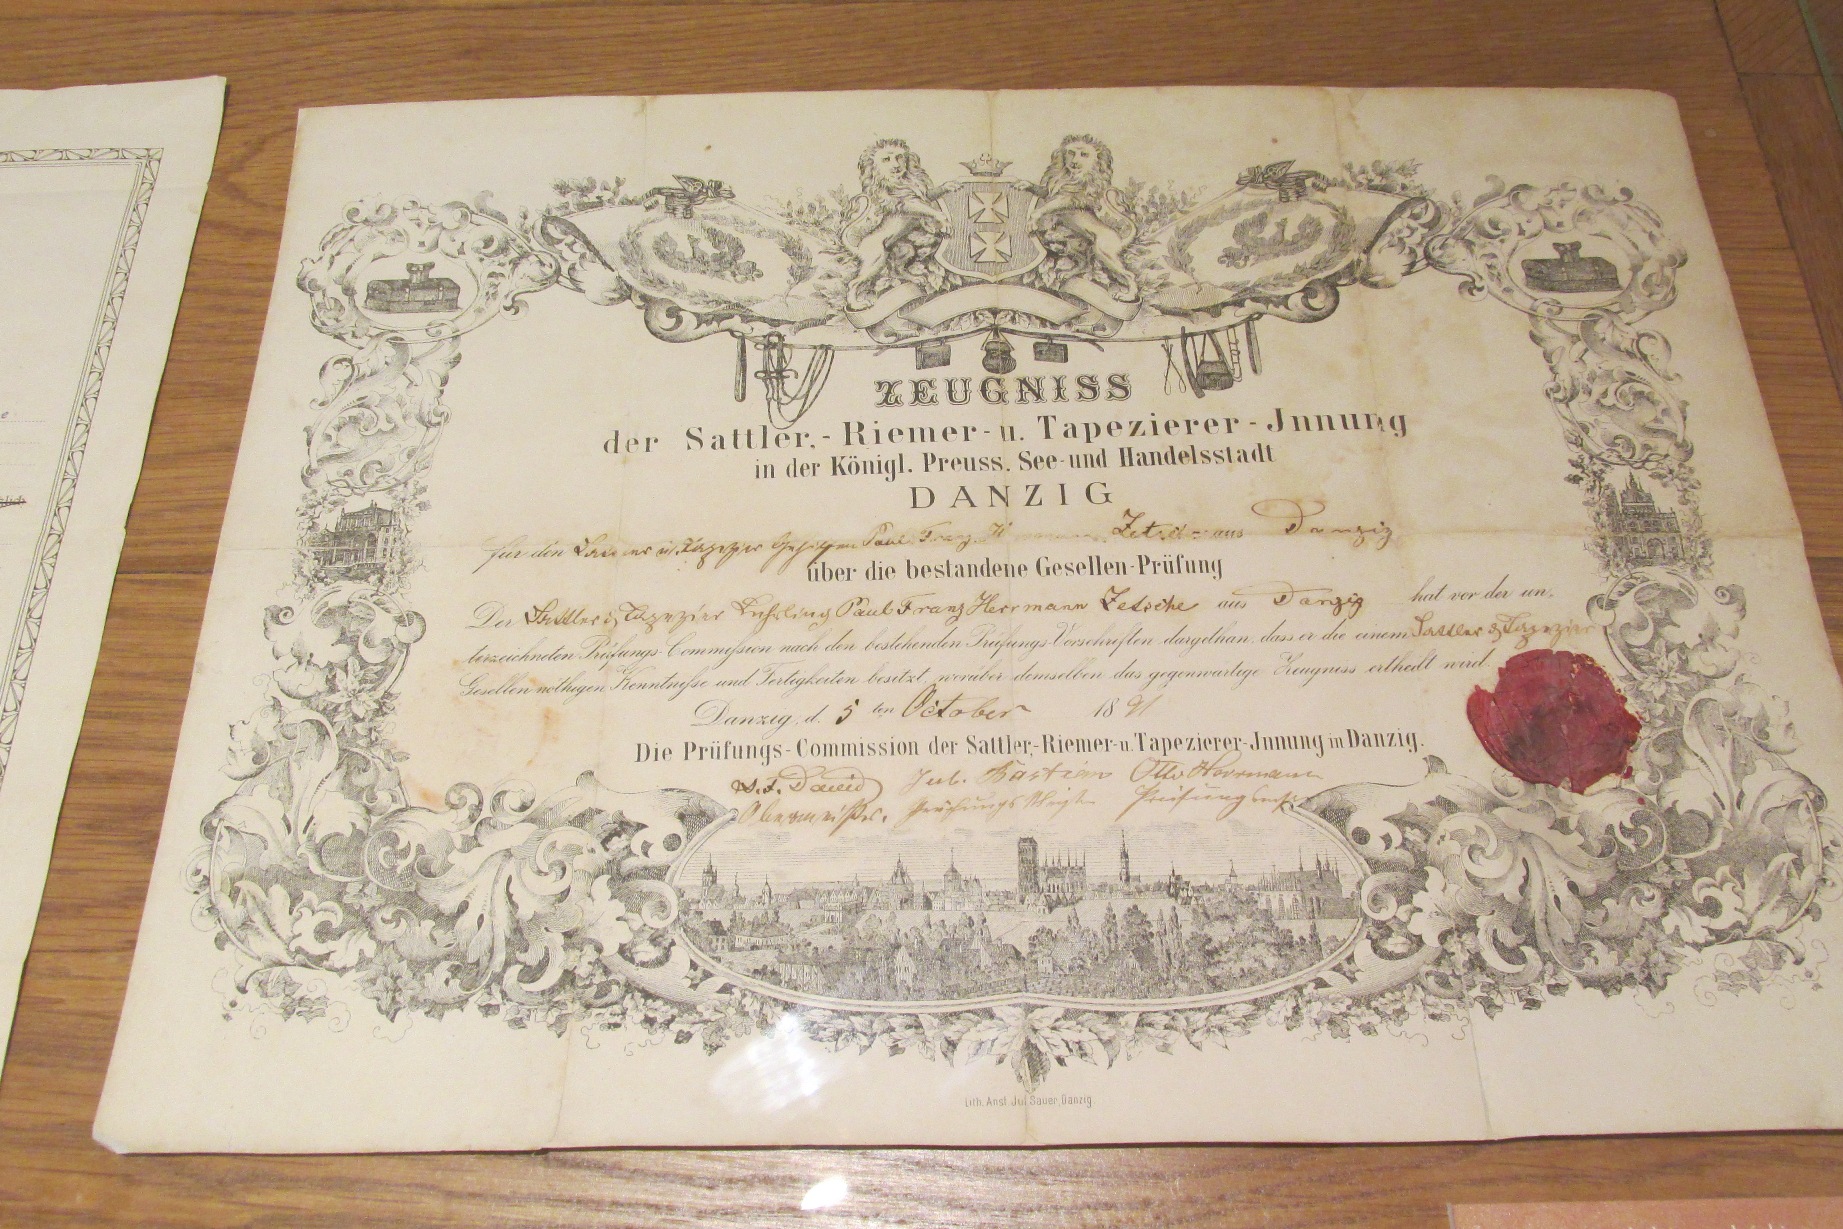 ZEUGNISS
der Sattler,- Riemer- u. Tapezierer - Jnnung
in der Königl. Preuss. See- und Handelsstadt
DANZIG
für den Sattler u. Tapezier Gesellen Paul Franz Zetsche aus Danzig
über die bestandene Gesellen-Prüfung
Der Sattler & Tapezier Lehrling Paul Franz Herrmann Zetsche aus Danzig hat vor der un-
terzeichneten Prüfungs-Commission nach den bestehenden Prüfungs-Vorschriften dargethan, dass er die einem Sattler & Tapezier
Gesellen nöthigen Kenntnisse und Fertigkeiten besitzt, worüber demselben das gegenwärtige Zeugniss ertheilt wird.
Danzig, d. 5 ten October 1891
Die Prüfungs-Commission der Sattler,-Riemer-u. Tapezierer-Jnnung in Danzig.
David Jul. Bastian Otto Herrmann
Obermeister.
Lith. Anst. Jul. Sauer, Danzig.